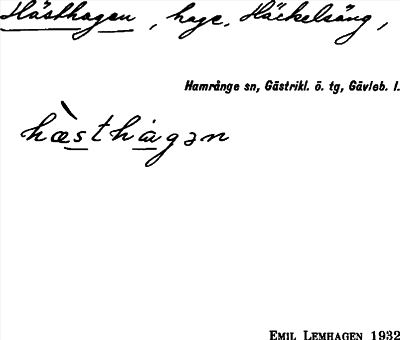 Hästhagen, hage. Häckelsäng,
Hamrånge sn, Gästrikl. ö. tg, Gävleb. l.
hæ̀sthągən
EMIL LEMHAGEN 1932